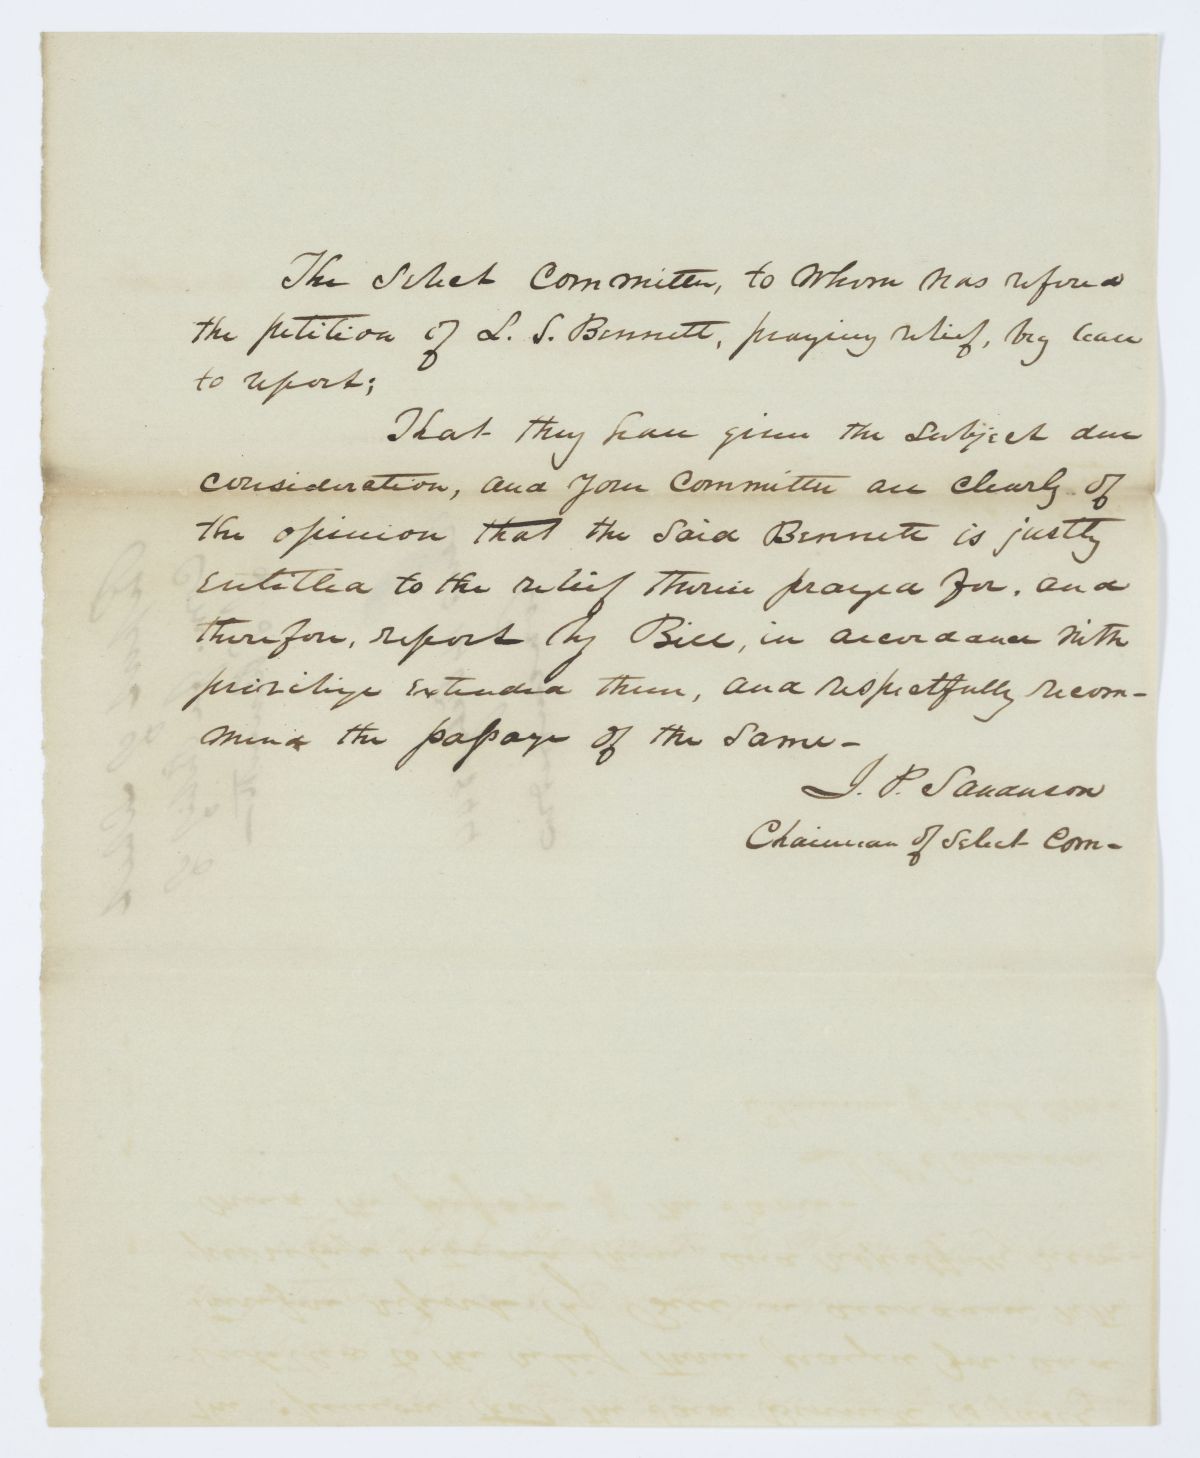 The Select Committee, to whom was refered
the petition of L. S. Bennett, praying relief, beg leave
to report;
That they have given the subject due
consideration, and your Committee are clearly of
the opinion that the said Bennett is justly
entitled to the relief therein prayed for, and
therefore, report by Bill, in accordance with
privilige extended them, and respectfully recom-
mend the passage of the same -
J. P.
Chairman of Select Com-